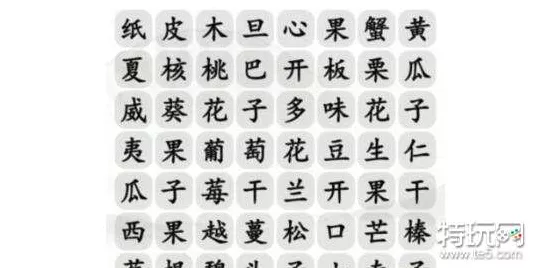 纸皮木旦心果蟹黄
夏核桃巴开板栗瓜
威葵花子多味花子
夷果葡萄花豆生仁
瓜子莓干兰开果干
西果越蔓松口芒榛
特玩网
te5.com